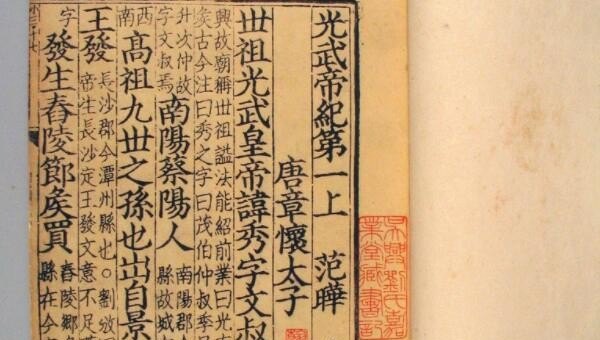 光武帝紀第一上 范曄
唐章懷太子
世祖光武皇帝諱秀字文叔
興故廟稱世祖諡法能紹前業曰光
矦古今注曰秀之字曰茂伯仲叔季
升次仲故
字文叔焉
南陽蔡陽人
南陽郡
縣故城
西
南
高祖九世之孫也出自景
王發
長沙郡今潭州縣也○劉攽
帝生長沙定王發文意不足
字
發生舂陵節矦買
舂陵鄉
縣在今
吳興劉氏嘉
業堂藏書記